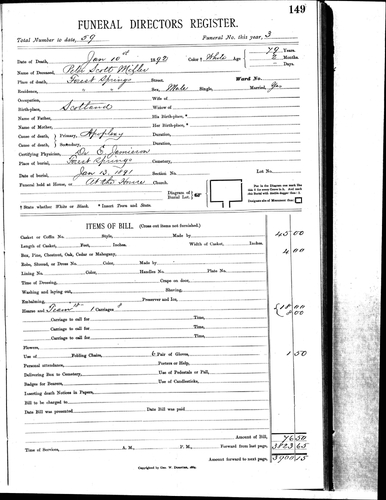 149
FUNERAL DIRECTORS REGISTER.
Total Number to date, 59 Funeral No. this year, 3
Date of Death, Jan 10th 1892 Color † White Age 79 Years.
2 Months.
Days.
Name of Deceased, Peter Scott Miller
Place of death, Forest Springs Street. Ward No.
Residence, " Sex, Male Single, Married, Yes
Occupation, Wife of
Birth-place, Scotland Widow of
Name of Father, His Birth-place, *
Name of Mother, Her Birth-place, *
Cause of death, Primary, Apoplexy Duration,
Cause of death, Secondary, Duration,
Certifying Physician, Dr E. Jamieson
Place of burial, Forest Springs Cemetery,
Date of burial, Jan 13. 1891 Section No. Lot No.
Funeral held at Home, or At the House Church. Diagram of Burial Lot.
† State whether White or Black. * Insert Town and State.
ITEMS OF BILL. (Cross out items not furnished.)
Casket or Coffin No. Style, Made by 45 00
Length of Casket, Feet, Inches. Width of Casket, Inches.
Box, Pine, Chestnut, Oak, Cedar or Mahogany, 4 00
Robe, Shroud, or Dress No. Color, Made by
Lining No. Color, Handles No. Plate No.
Time of Dressing, Crape on door,
Washing and laying out, Shaving,
Embalming, Preserver and Ice,
Hearse and Team 1 Carriages 18 00
8 00
Carriage to call for Time,
Carriage to call for Time,
Carriage to call for Time,
Carriage to call for Time,
Flowers,
Use of Folding Chairs, 6 Pair of Gloves, 1 50
Personal attendance, Porters or Help,
Delivering Box to Cemetery, Use of Pedestals or Pall,
Badges for Bearers, Use of Candlesticks,
Inserting death Notices in Papers,
Bill to be charged to
Date Bill was presented Date Bill was paid
Amount of Bill, 76 50
Time of Services, A. M., P. M., Forward from last page, 3823 65
Amount forward to next page, 3900 15